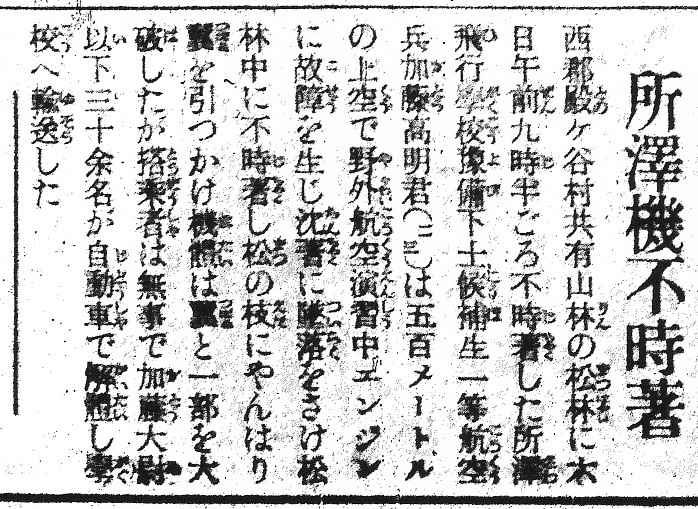 所澤機不時著
西郡殿ヶ谷村共有山林の松林に六
日午前九時半ごろ不時著した所澤
飛行學校豫備下士候補生一等航空
兵加藤高明君(二三)は五百メートル
の上空で野外航空演習中エンジン
に故障を生じ沈著に墜落をさけ松
林中に不時著し松の枝にやんはり
翼を引つかけ機體は翼と一部を大
破したが搭乘者は無事で加藤大尉
以下三十余名が自動車で解體し學
校へ輸送した